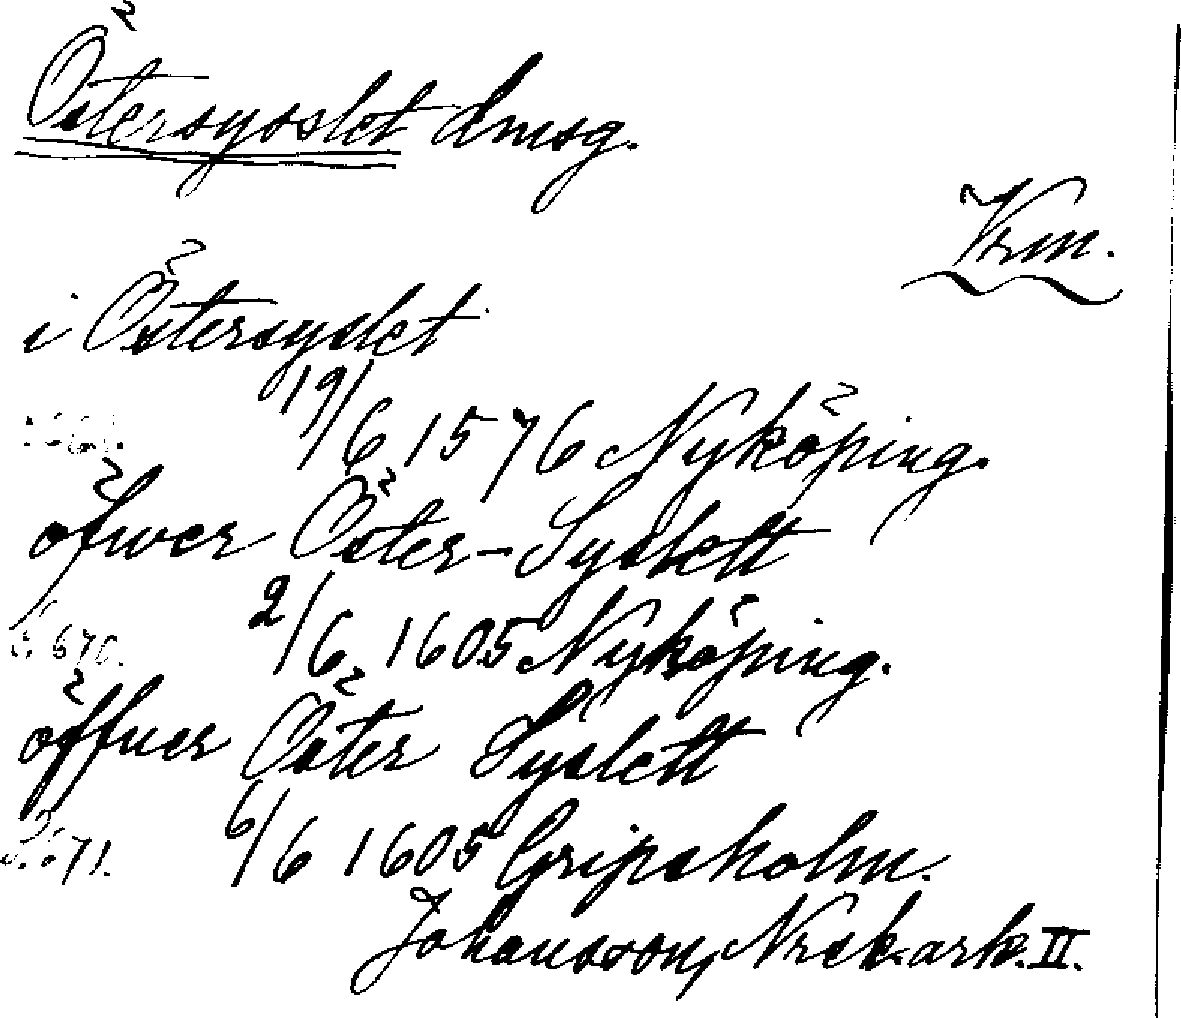 Östersysslet dmsg.
Vrm.
i Östersyslet
19/6 1576 Nyköping.
öfwer Öster-Syslett
S. 670. 2/6 1605 Nyköping.
öffuer Öster Syslett
S. 671. 6/6 1605 Gripsholm.
Johansson, Norsk. ark. II.